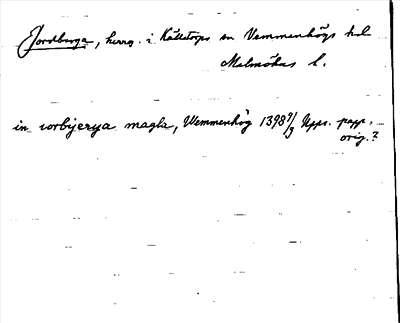 Jordberga, herrg. i Källstorps sn Vemmenhögs hd
Malmöhus l.
in iorbyerya magla, Wemmenhög 1398 9/9 Upps. papp.
orig.?